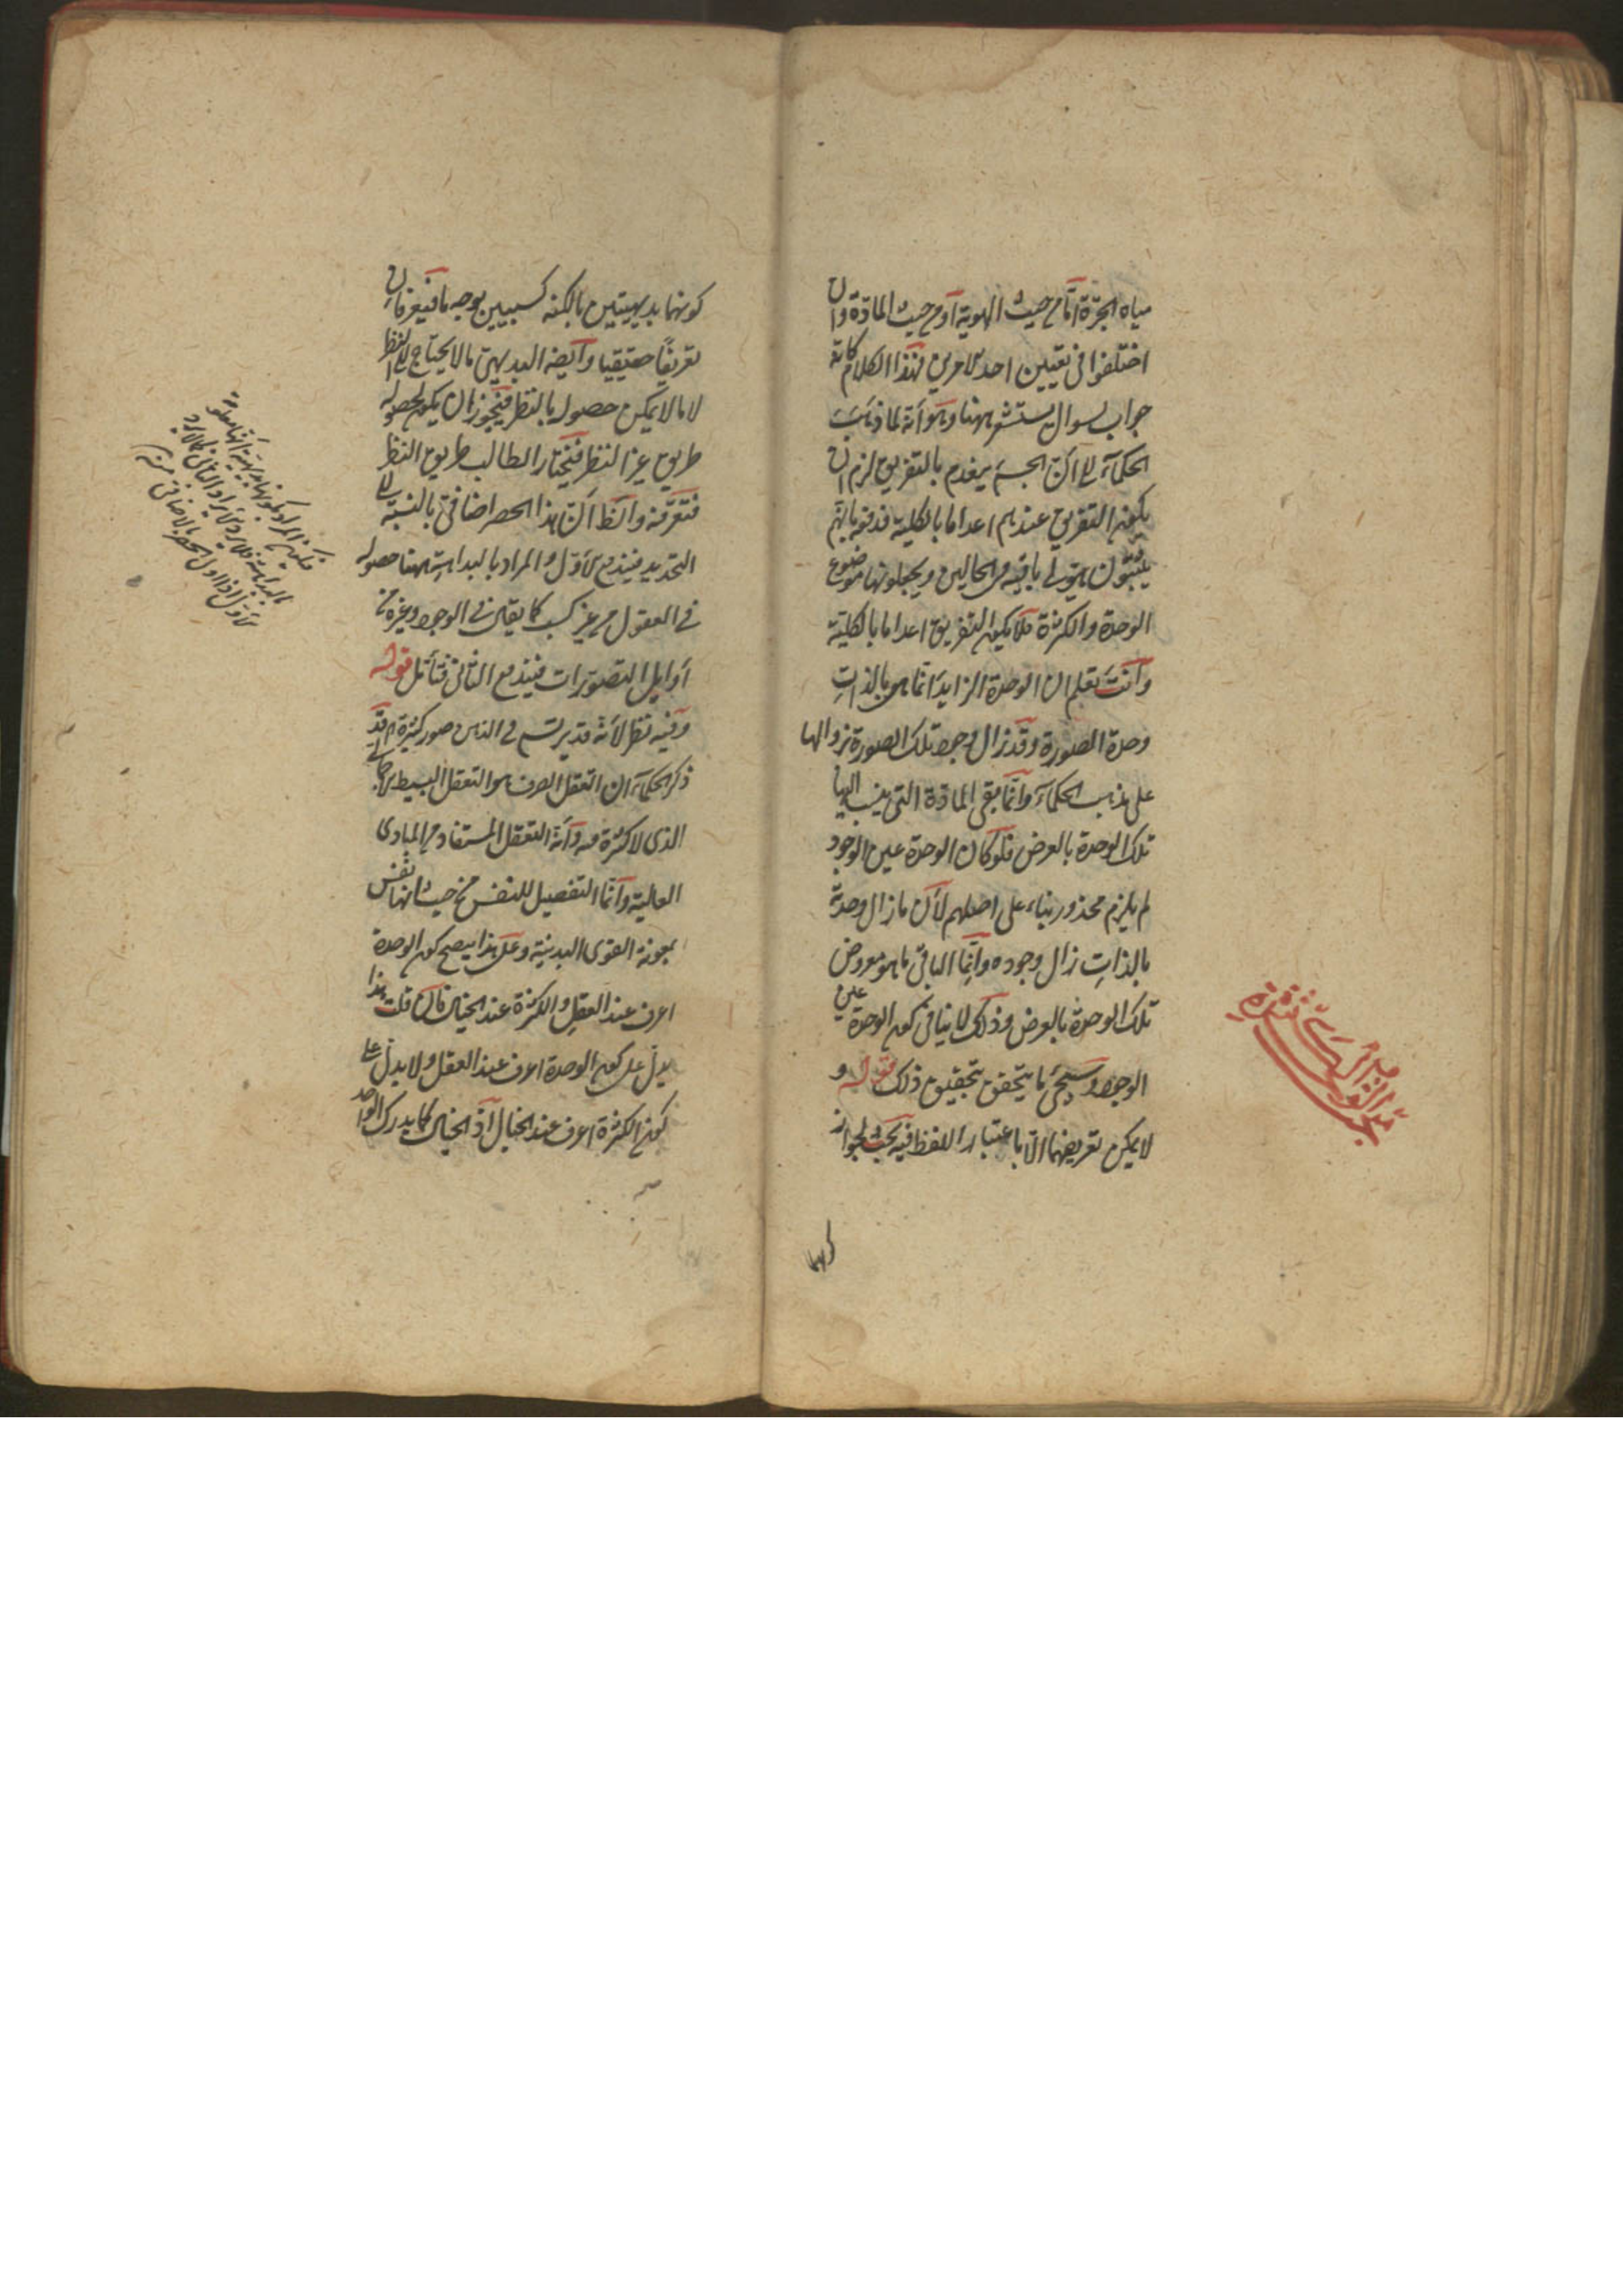 مياه الجرة اما من حيث الهوية او من حيث المادة وان
اختلفوا في تعيين احد الامرين فهذا الكلام كانه
جواب لسوال يستشعر ههنا وهو انه لما ذهبت
الحكماء الى ان الجسم ينعدم بالتفريق لزم ان
يكون التفريق عندهم اعداما بالكلية فدفعه بانهم
يثبتون هيولى باقية في الحالين ويجعلونها موضوع
الوحدة والكثرة فلا يكون التفريق اعداما بالكلية
وانت تعلم ان الوحدة الزايد انما هي بالذات
وحدة الصورة وقد زال وجود تلك الصورة بزوالها
على مذهب الحكماء وانما بقي المادة التي ينسب اليها
تلك الوحدة بالعرض فلو كان الوحدة عين الوجود
لم يلزم محذور بناء على اصلهم لان ما زال وحدته
بالذات زال وجوده وانما الباقي ما هو معروض
تلك الوحدة بالعرض وذلك لا ينافي كون الوحدة عين
الوجود وسيجئ ما يتحقق بتحقيق ذلك قوله و
لا يمكن تعريفهما الا باعتبار اللفظ فيه بحث لجواز
كونهما
كونهما بديهيتين بالكنه كسبيين بوجه ما فيعرفان
تعريفا حقيقيا وايضا البديهي ما لا يحتاج الى النظر
لا ما لا يمكن حصوله بالنظر فيجوز ان يكون لحصوله
طريق غير النظر فيختار الطالب طريق النظر
فتعرفه والظ ان هذا الحصر اضافي بالنسبة الى
التحديد فيندفع الاول والمراد بالبداهة ههنا حصوله
في العقول من غير كسب كما يقال في الوجود وغيره من
اوايل التصورات فيندفع الثاني فتأمل قوله
وفيه نظر لانه قد يرتسم في النفس صور كثيرة قد
ذكر الحكماء ان التعقل الصرف هو التعقل البسيط
الذي لا كثرة فيه وانه التعقل المستفاد من المبادى
العالية وانما التفصيل للنفس من حيث انها نفس
بمعونة القوى البدنية وعلى هذا يصح كون الوحدة
اعرف عند العقل والكثرة عند الخيال فان قلت هذا
يدل على كون الوحدة اعرف عند العقل ولا يدل على
كون الكثرة اعرف عند الخيال اذ الخيال كما يدرك الواحد